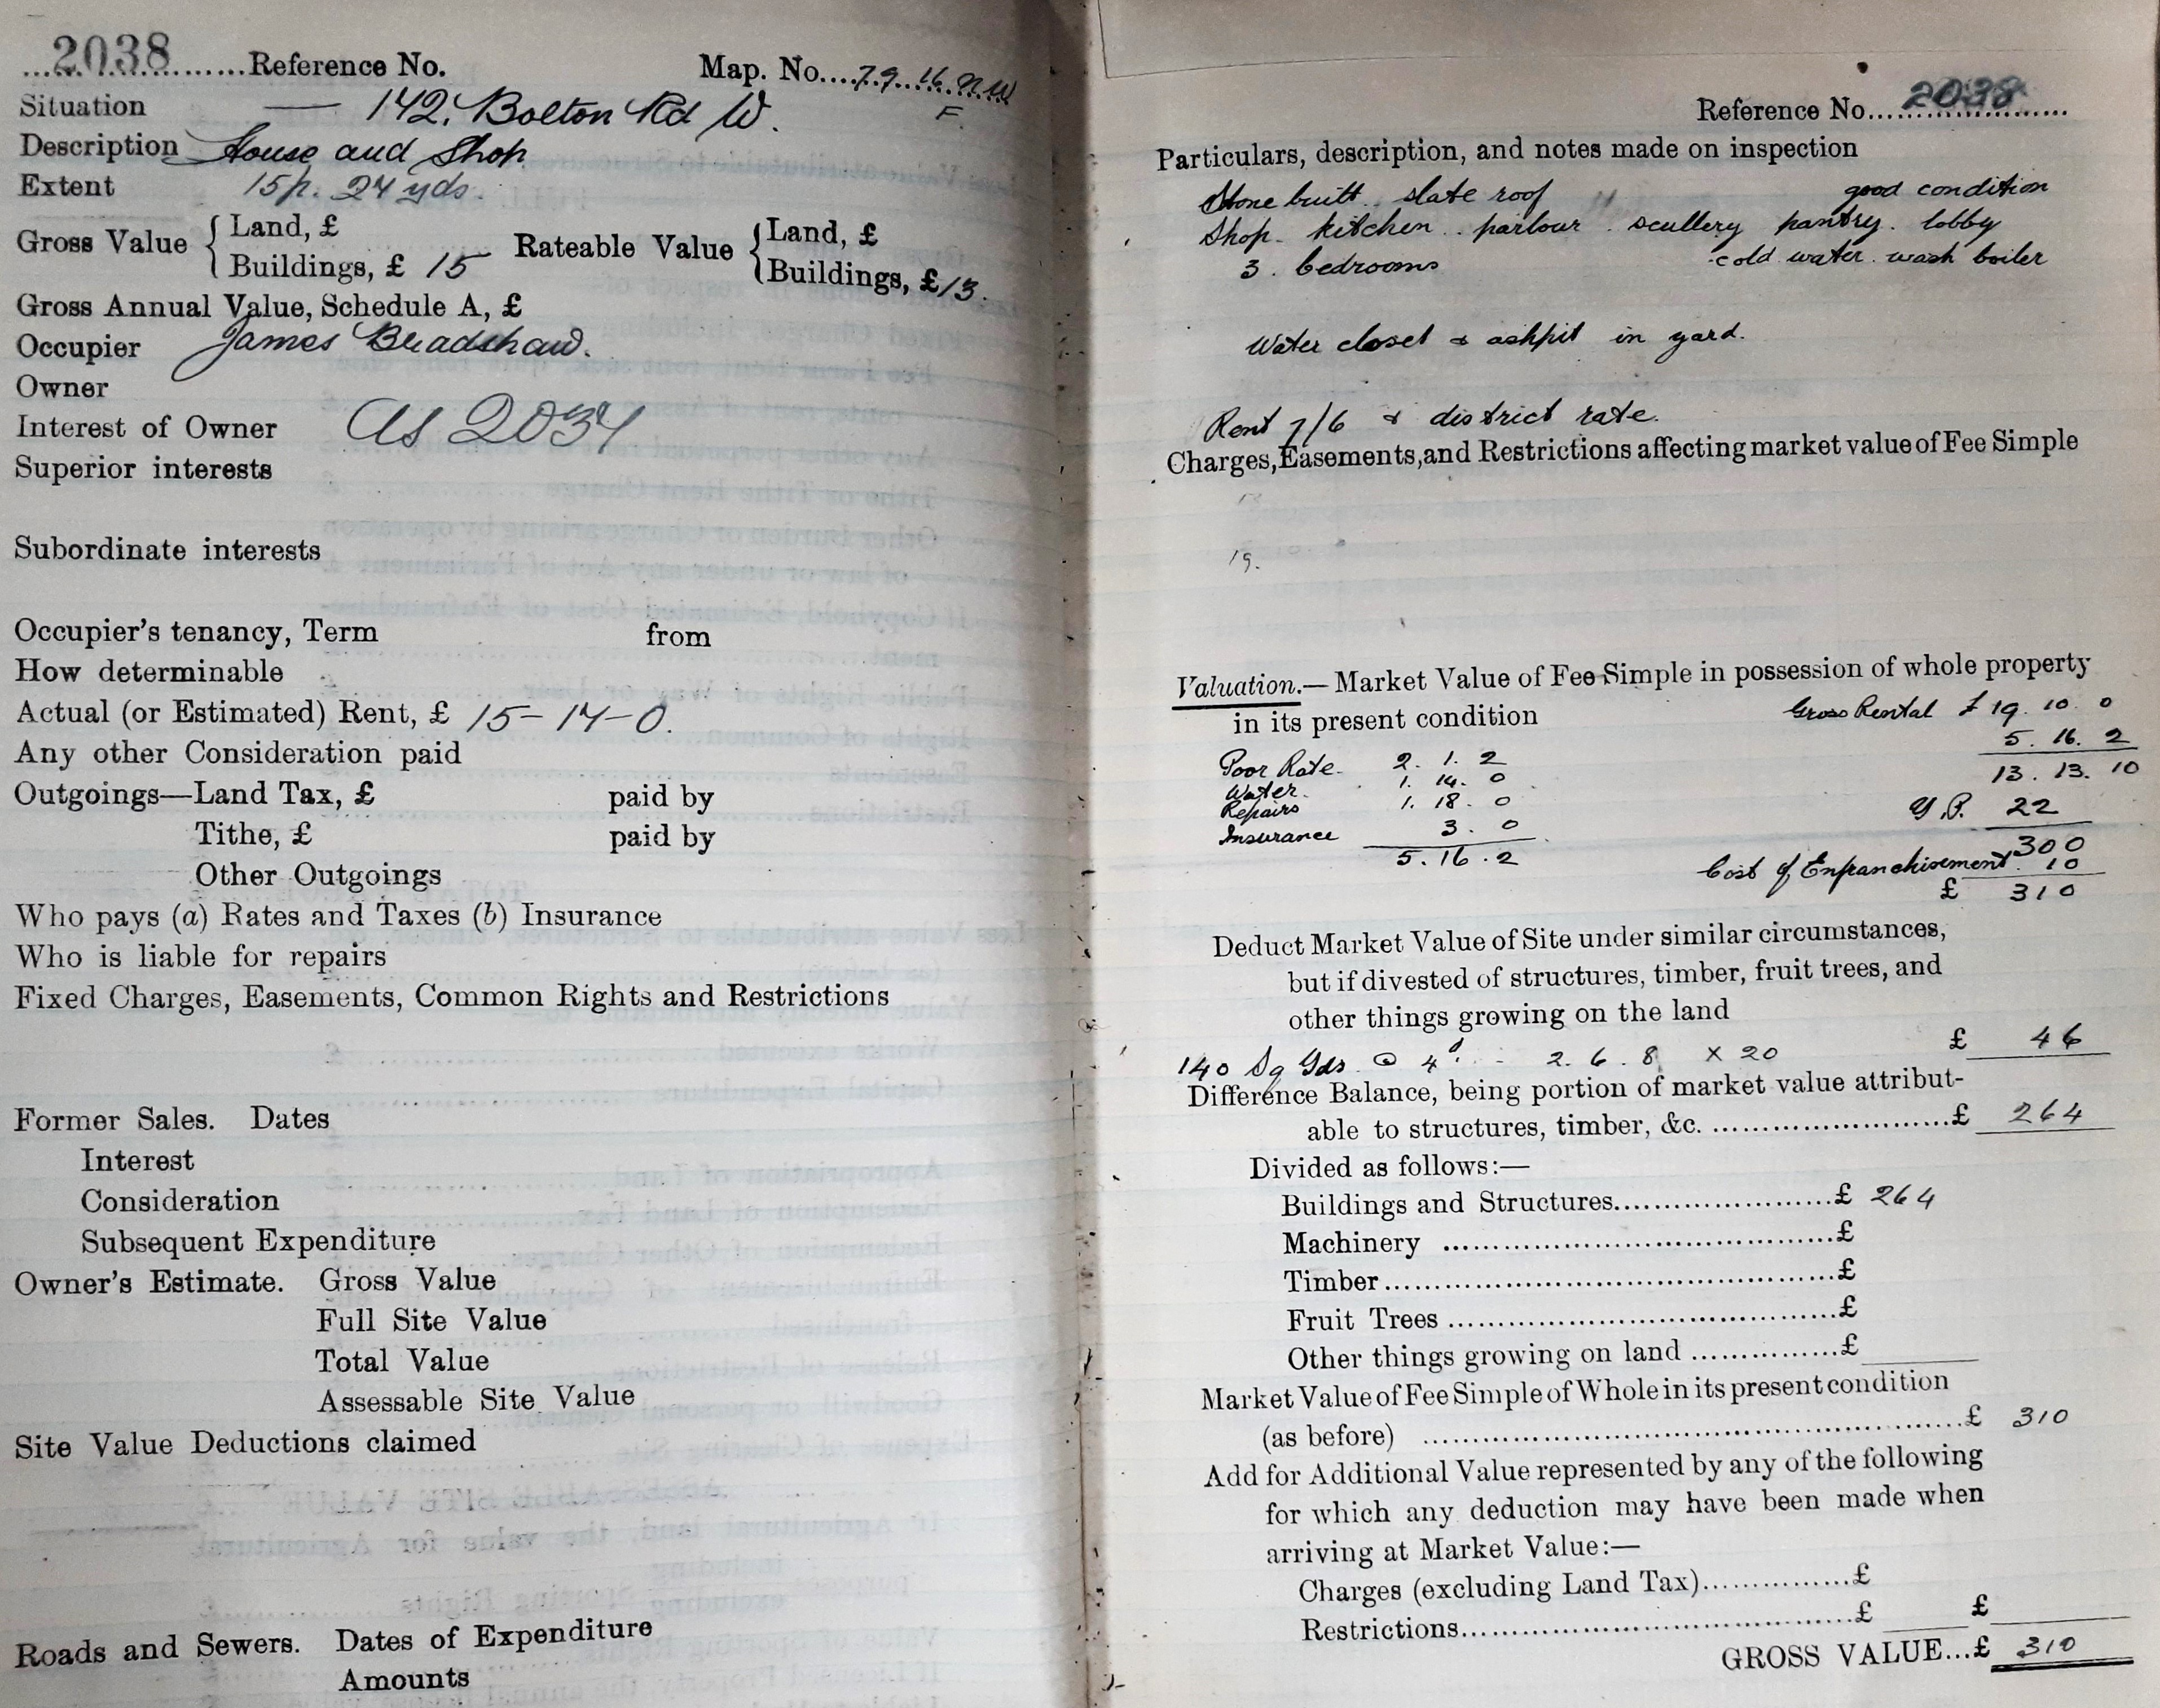 2038 Reference No. Map. No. 79. 16. N.W
F.
Situation — 142, Bolton Rd W.
Description House and Shop
Extent 15p. 24 yds.
Gross Value { Land, £ Rateable Value { Land, £
Buildings, £ 15 Buildings, £ 13.
Gross Annual Value, Schedule A, £
Occupier James Bradshaw.
Owner
Interest of Owner as 2034
Superior interests
Subordinate interests
Occupier's tenancy, Term from
How determinable
Actual (or Estimated) Rent, £ 15-14-0.
Any other Consideration paid
Outgoings—Land Tax, £ paid by
Tithe, £ paid by
Other Outgoings
Who pays (a) Rates and Taxes (b) Insurance
Who is liable for repairs
Fixed Charges, Easements, Common Rights and Restrictions
Former Sales. Dates
Interest
Consideration
Subsequent Expenditure
Owner's Estimate. Gross Value
Full Site Value
Total Value
Assessable Site Value
Site Value Deductions claimed
Roads and Sewers. Dates of Expenditure
Amounts
Reference No. 2038
Particulars, description, and notes made on inspection
Stone built. slate roof good condition
Shop. kitchen. parlour. scullery pantry. lobby
3. bedrooms cold water. wash boiler
Water closet & ashpit in yard.
Rent 7/6 & district rate.
Charges, Easements, and Restrictions affecting market value of Fee Simple
19.
Valuation.—Market Value of Fee Simple in possession of whole property
in its present condition Gross Rental £ 19. 10. 0
5. 16. 2
Poor Rate. 2. 1. 2 13. 13. 10
Water. 1. 14. 0
Repairs 1. 18. 0 Y.P. 22
Insurance 3. 0 300
5. 16. 2 Cost of Enfranchisement 10
£ 310
Deduct Market Value of Site under similar circumstances,
but if divested of structures, timber, fruit trees, and
other things growing on the land
140 Sq Yds. @ 4d. - 2. 6. 8 x 20 £ 46
Difference Balance, being portion of market value attribut-
able to structures, timber, &c. £ 264
Divided as follows:—
Buildings and Structures £ 264
Machinery £
Timber £
Fruit Trees £
Other things growing on land £
Market Value of Fee Simple of Whole in its present condition
(as before) £ 310
Add for Additional Value represented by any of the following
for which any deduction may have been made when
arriving at Market Value:—
Charges (excluding Land Tax) £
Restrictions £ £
GROSS VALUE...£ 310